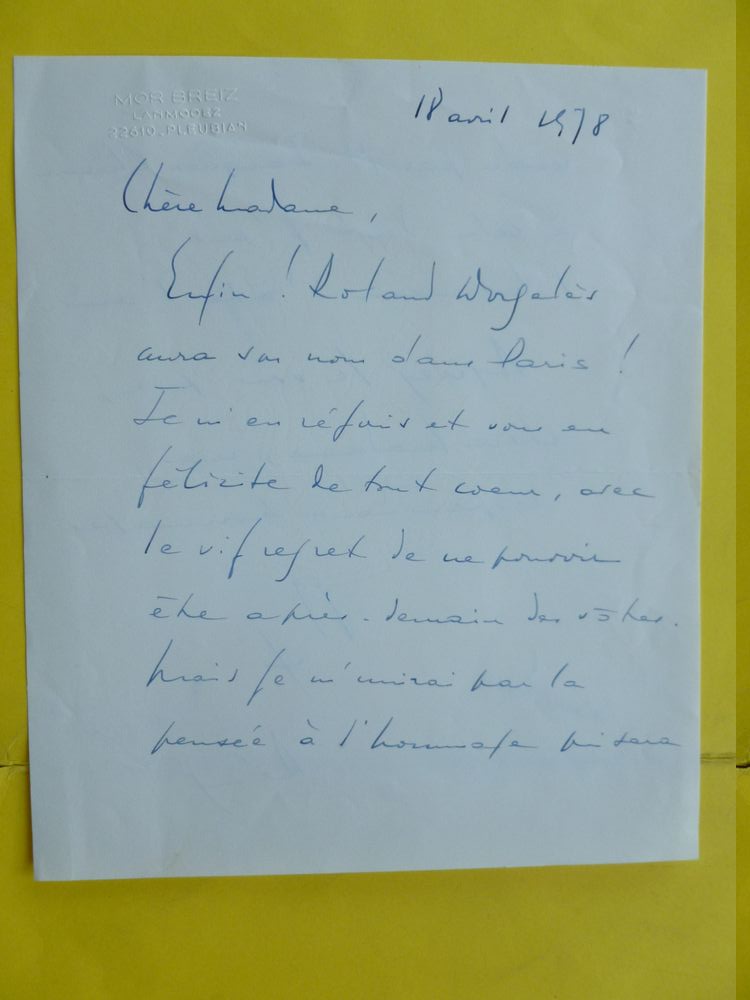 MOR BREIZ
LANMODEZ
22610. PLEUBIAN
18 avril 1978
Chère Madame,
Enfin ! Roland Dorgelès
aura son nom dans Paris !
Je m'en réjouis et vous en
félicite de tout coeur, avec
le vif regret de ne pouvoir
être après-demain des vôtres.
Mais je m'unirai par la
pensée à l'hommage qui sera